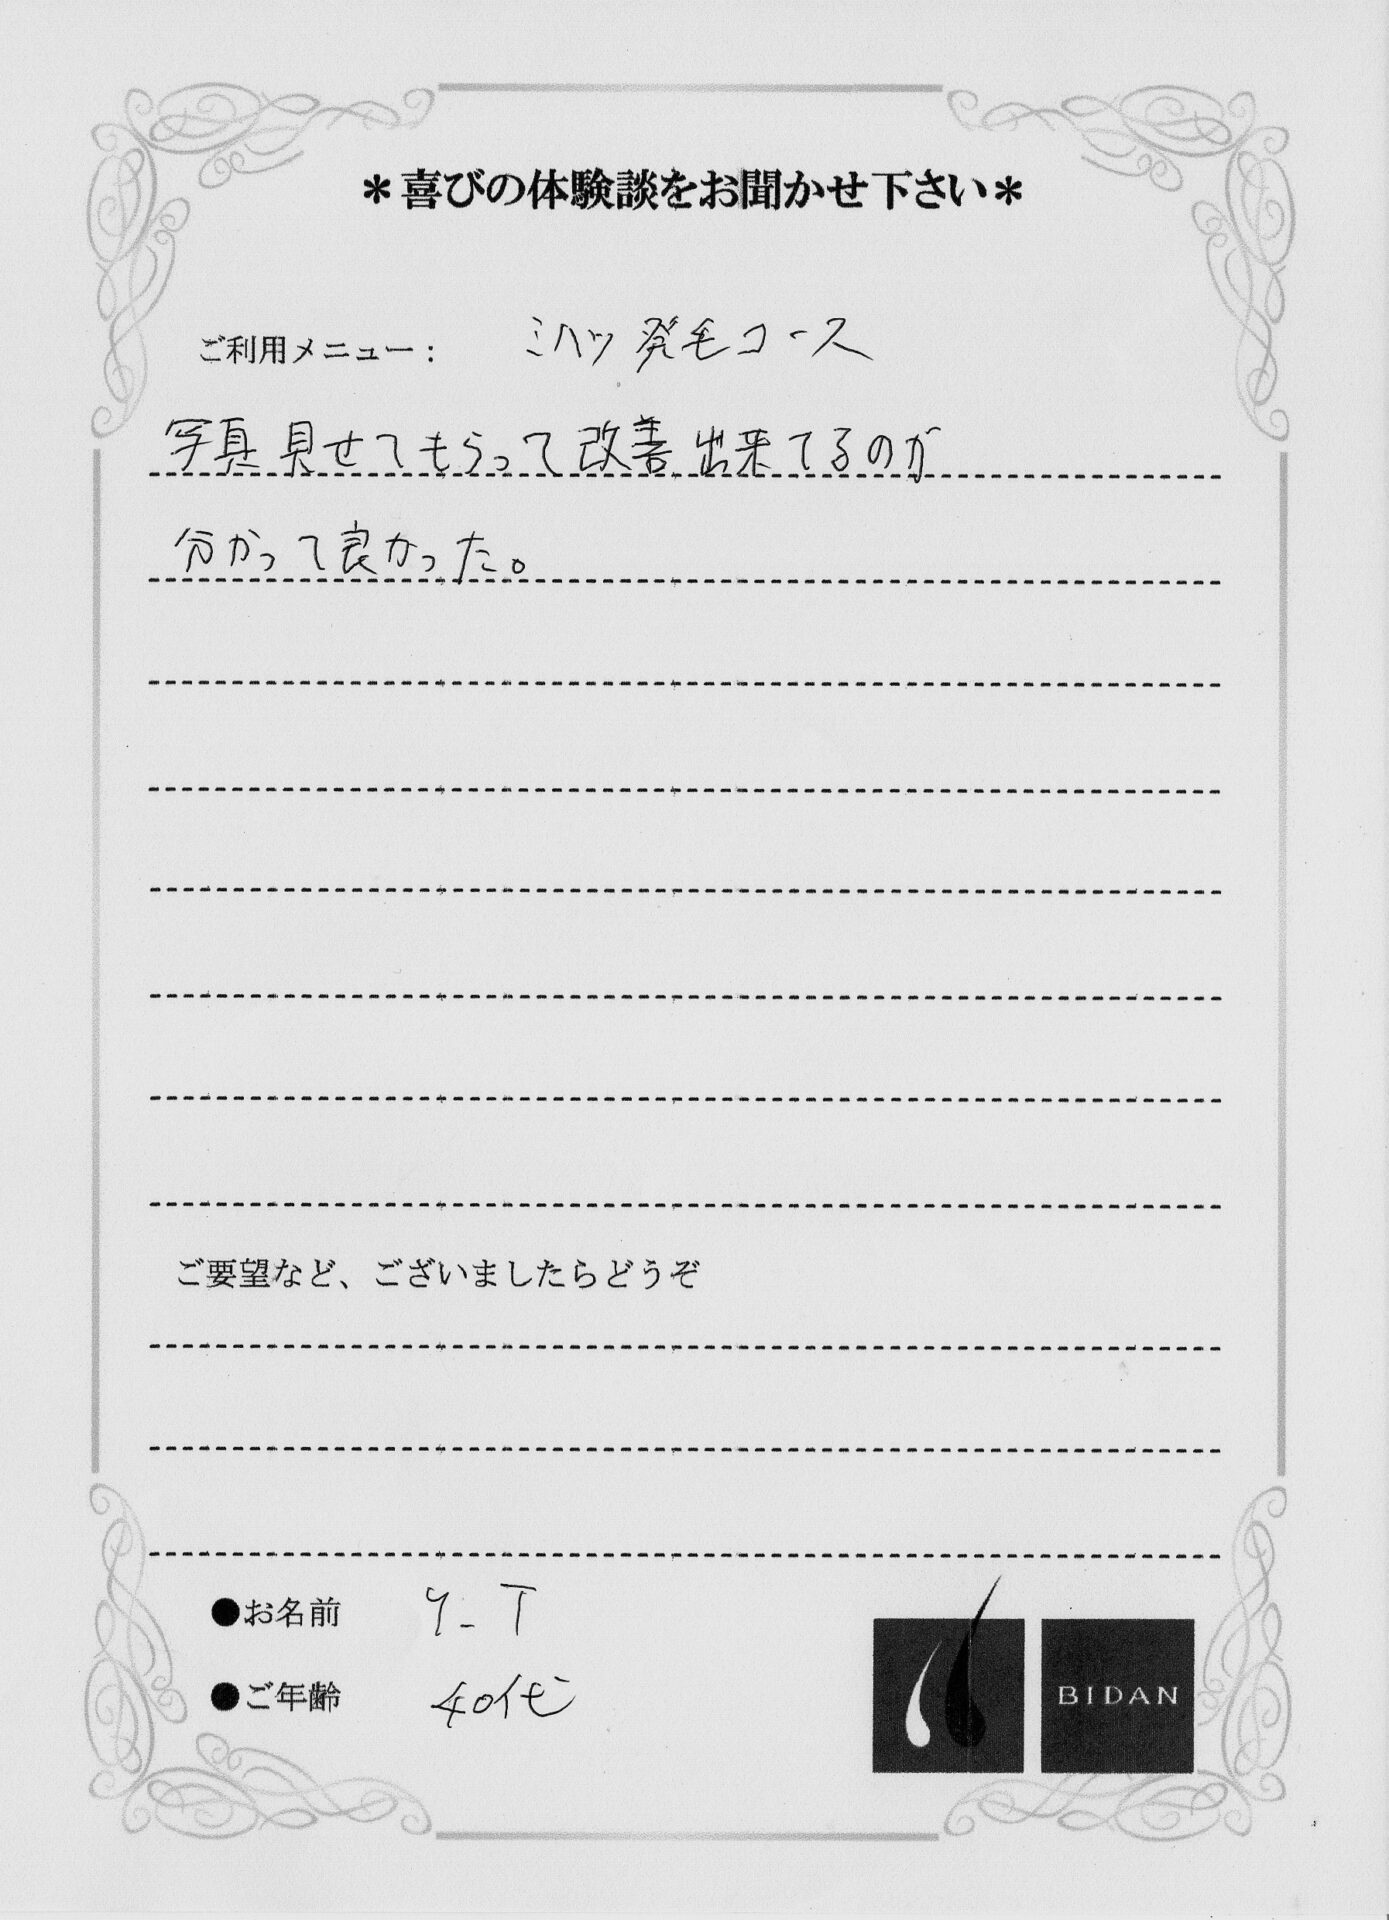 ＊喜びの体験談をお聞かせ下さい＊
ご利用メニュー： ミハツ発毛コース
写真見せてもらって改善出来てるのが
分かって良かった。
ご要望など、ございましたらどうぞ
●お名前 Y-T
●ご年齢 40代
BIDAN